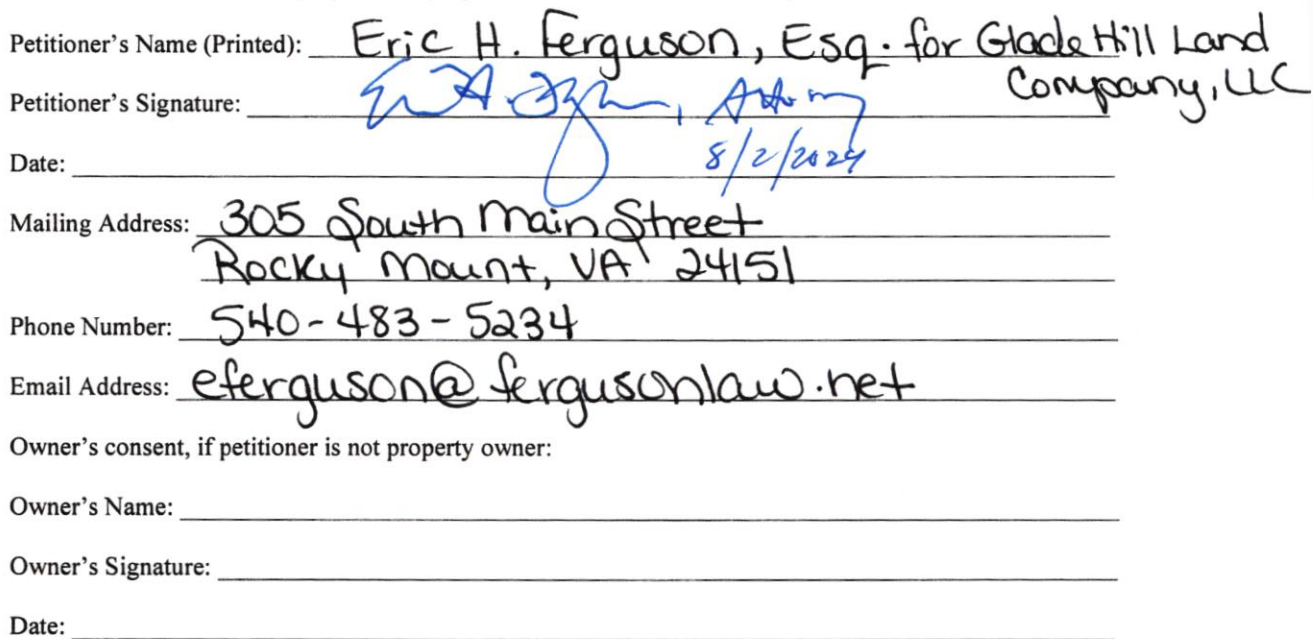 Petitioner's Name (Printed): Eric H. Ferguson, Esq. for Glade Hill Land
Company, LLC
Petitioner's Signature: Eric H. Ferguson, Attorney
Date: 8/2/2024
Mailing Address: 305 South Main Street
Rocky Mount, VA 24151
Phone Number: 540-483-5234
Email Address: eferguson@fergusonlaw.net
Owner's consent, if petitioner is not property owner:
Owner's Name:
Owner's Signature:
Date: